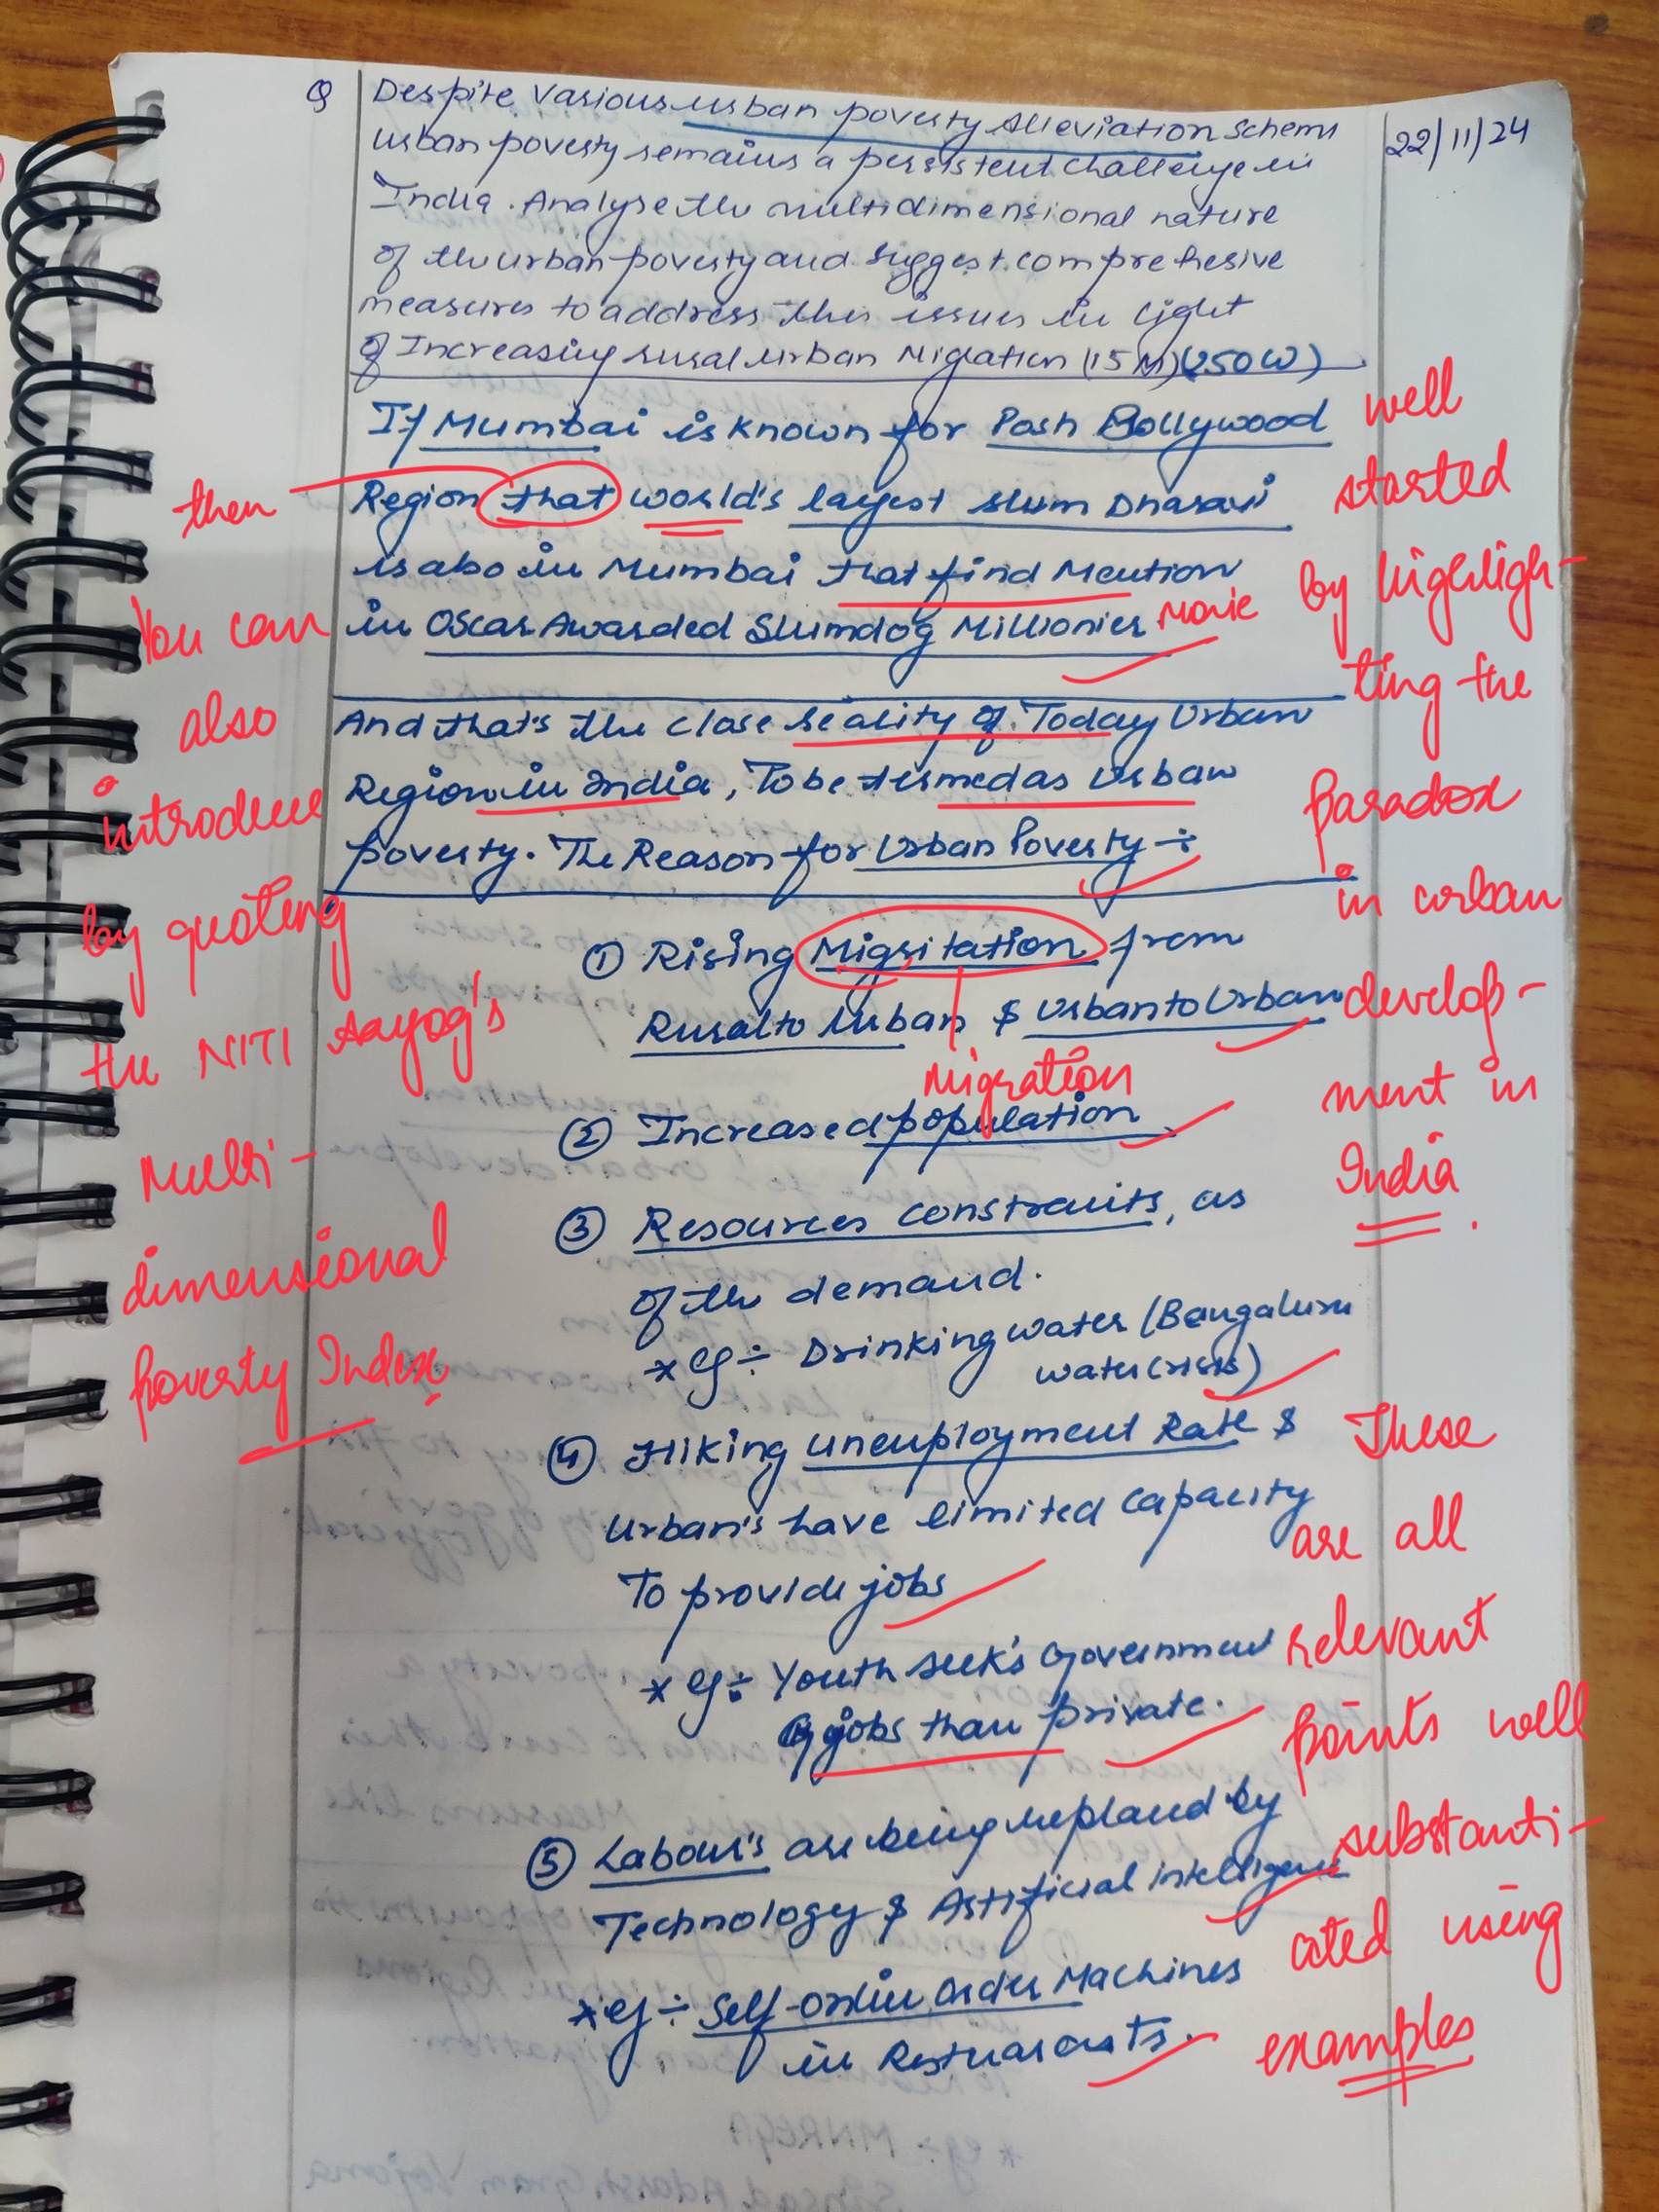 Q Despite Various urban poverty Alleviation Schems 22/11/24
urban poverty remains a persistent challenge in
India. Analyse the multidimensional nature
of the urban poverty and suggest comprehesive
measures to address this issues in light
of Increasing rural urban Migration (15M) (250W)
If Mumbai is known for Posh Bollywood
Region that world's largest slum Dharavi
is also in Mumbai that find Mention
in Oscar Awarded Slumdog Millionier. Movie
And that's the close reality of Today Urban
Region in India, To be termed as Urban
poverty. The Reason for Urban Poverty :-
① Rising Migritation from
Rural to Urban & Urban to Urban
Migration
② Increased population
③ Resources constraits, as
of the demand.
* eg ÷ Drinking water (Bangaluru
water crisis)
④ Hiking unemployment Rate &
Urban's have limited capacity
To provide jobs
* eg ÷ Youth seek's Government
jobs than private.
⑤ Labour's are being replaced by
Technology & Artificial Intelligence
* eg ÷ Self-order Machines
in Restuarants.
then
You can
also
introduce
by quoting
the NITI Aayog's
Multi-
dimensional
Poverty Index
well
started
by highligh-
ting the
Paradox
in urban
develop-
ment in
India.
These
are all
relevant
points well
substanti-
ated using
examples